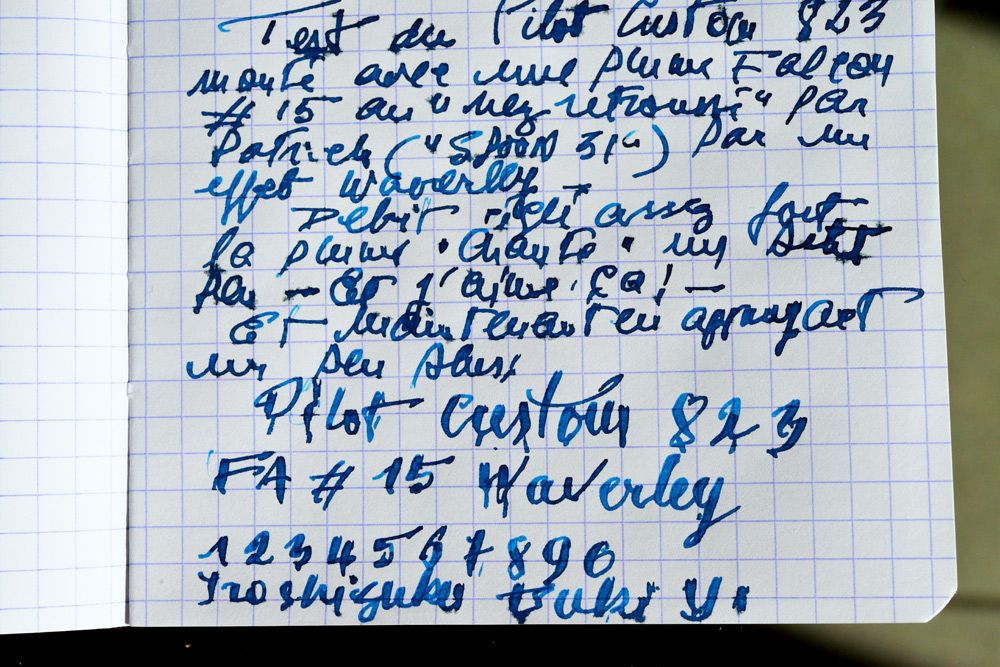 Test du Pilot Custom 823
monté avec une plume Falcon
# 15 au "nez retroussé" par
Patrick ("SAAN 31") par un
effet Waverley -
Débit réglé assez fort
la plume "chante" un petit
peu - et j'aime ça! -
Et maintenant en appuyant
un peu plus:
Pilot Custom 823
FA # 15 Waverley
1 2 3 4 5 6 7 8 9 0
Iroshizuku Tsuki Y